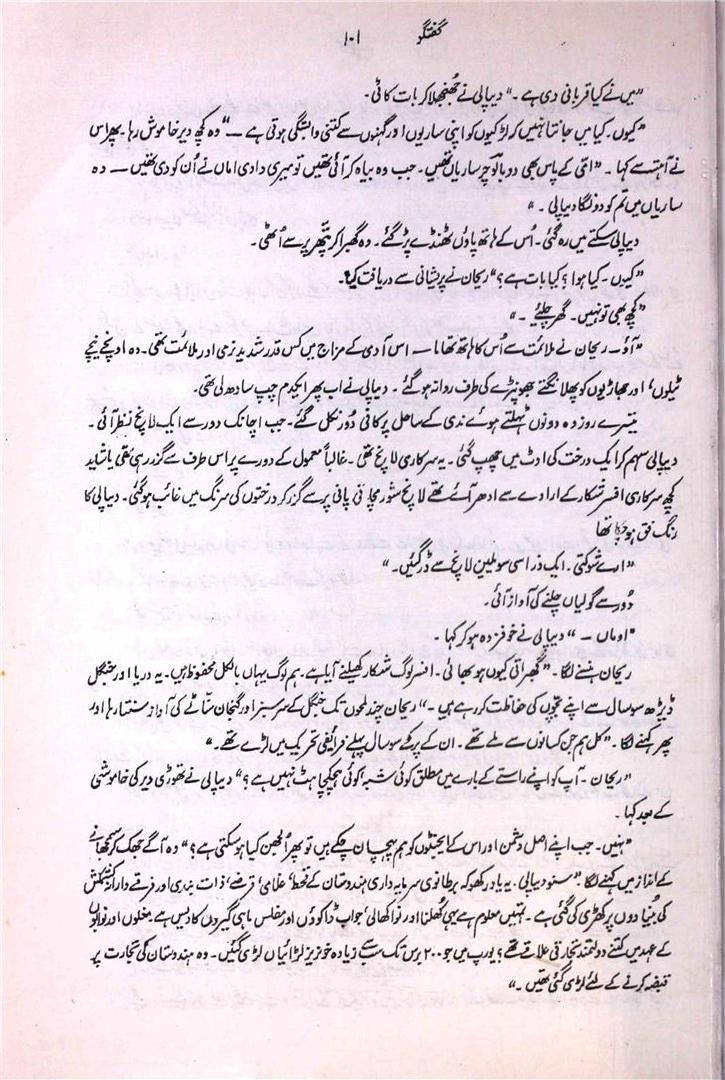 گفتگو ۱۰۱
"میں نے کیا قربانی دی ہے۔" دیپالی نے جھنجھلا کر بات کاٹی۔
"کیوں۔ کیا میں جانتا نہیں کہ لڑکیوں کو اپنی ساریوں اور گہنوں سے کتنی وابستگی ہوتی ہے —" وہ کچھ دیر خاموش رہا۔ پھر اس
نے آہستہ سے کہا۔ "امی کے پاس بھی دو بالوچر ساریاں تھیں۔ جب وہ بیاہ کر آئی تھیں تو میری دادی اماں نے اُن کو دی تھیں — وہ
ساریاں میں تم کو دونگا دیپالی۔"
دیپالی سکتے میں رہ گئی۔ اُس کے ہاتھ پاؤں ٹھنڈے پڑ گئے۔ وہ گھبرا کر پتھر پر سے اُٹھی۔
"کیوں۔ کیا ہوا؟ کیا بات ہے؟" ریحان نے پریشانی سے دریافت کیا۔
"کچھ بھی تو نہیں۔ گھر چلئے۔"
"آؤ۔ ریحان نے ملائمت سے اُس کا ہاتھ تھاما — اس آدمی کے مزاج میں کس قدر شدید نرمی اور ملائمت تھی۔ وہ اونچے نیچے
ٹیلوں، اور جھاڑیوں کو پھلانگتے جھونپڑے کی طرف روانہ ہو گئے۔ دیپالی نے اب پھر ایکدم چپ سادھ لی تھی۔
تیسرے روز وہ دونوں ٹہلتے ہوئے ندی کے ساحل پر کافی دُور نکل گئے۔ جب اچانک دور سے ایک لانچ نظر آئی۔
دیپالی سہم کر ایک درخت کی اوٹ میں چھپ گئی۔ یہ سرکاری لانچ تھی۔ غالباً معمول کے دورے پر اس طرف سے گذر رہی تھی یا شاید
کچھ سرکاری افسر شکار کے ارادے سے ادھر آئے تھے لانچ شور مچاتی پانی پر سے گزر کر درختوں کی سرنگ میں غائب ہو گئی۔ دیپالی کا
رنگ فق ہو چکا تھا
"ارے شوکتی۔ ایک ذرا سی سویلین لانچ سے ڈر گئیں۔"
دُور سے گولیاں چلنے کی آواز آئی۔
"او ماں —" دیپالی نے خوفزدہ ہو کر کہا۔
ریحان ہنسنے لگا۔ "گھبراتی کیوں ہو بھائی۔ افسر لوگ شکار کھیلنے آیا ہے۔ ہم لوگ یہاں بالکل محفوظ ہیں۔ یہ دریا اور جنگل
ڈیڑھ سو سال سے اپنے بچوں کی حفاظت کر رہے ہیں۔" ریحان چند لمحوں تک جنگل کے سرسبز اور گنجان سناٹے کی آواز سنتا رہا اور
پھر کہنے لگا۔ "کل ہم جن کسانوں سے ملے تھے۔ ان کے پُرکھے سو سال پہلے فرائضی تحریک میں لڑے تھے۔"
"ریحان۔ آپ کو اپنے راستے کے بارے میں مطلق کوئی شبہ، کوئی ہچکچاہٹ نہیں ہے؟" دیپالی نے تھوڑی دیر کی خاموشی
کے بعد کہا۔
"نہیں۔ جب اپنے اصل دشمن اور اس کے ایجنٹوں کو ہم پہچان چکے ہیں تو پھر اُلجھن کیا ہو سکتی ہے؟" وہ آگے جھک کر سمجھانے
کے انداز میں کہنے لگا۔ "سنو دیپالی۔ یہ یاد رکھو کہ برطانوی سرمایہ داری ہندوستان کے قحط، غلامی، قرضے، ذات بندی اور فرقے وارانہ کشمکش
کی بُنیادوں پر کھڑی کی گئی ہے۔ تمہیں معلوم ہے یہی کُھلنا اور نواکھالی، جو اب ڈاکوؤں اور مفلس ماہی گیروں کا دیس ہے مغلوں اور نوابوں
کے عہد میں کتنے دولتمند تجارتی علاقے تھے؟ یورپ میں جو ۲۰۰ برس تک سب سے زیادہ خونریز لڑائیاں لڑی گئیں۔ وہ ہندوستان کی تجارت پر
قبضہ کرنے کے لئے لڑی گئی تھیں۔"